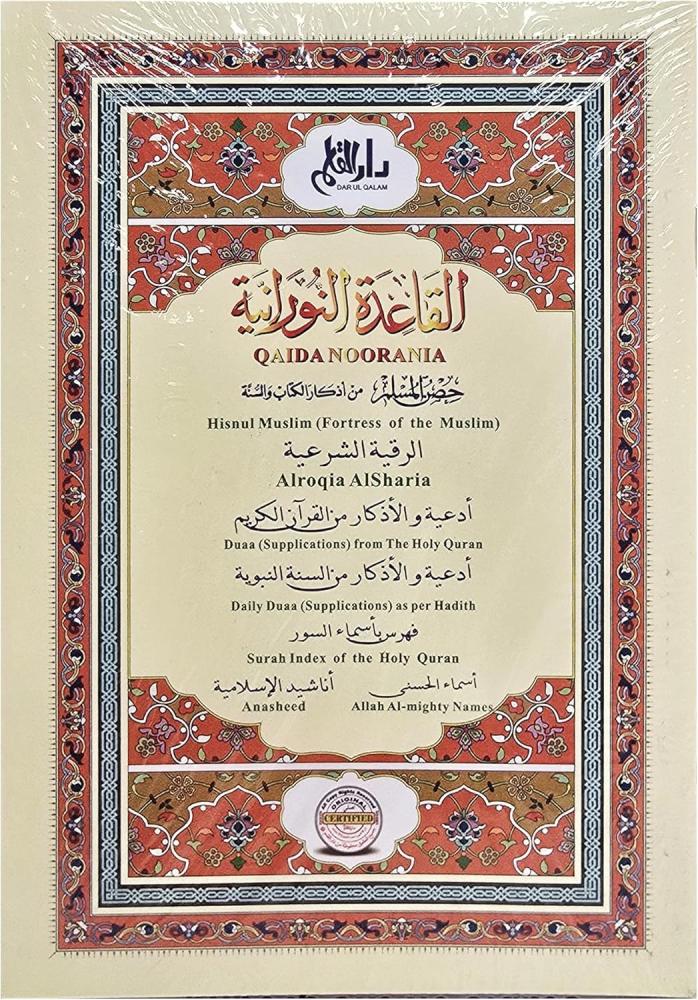 دار القلم
DAR UL QALAM
القَاعِدَة النُّورَانِيَّة
QAIDA NOORANIA
حِصْنُ المُسْلِمِ مِنْ أَذْكَارِ الكِتَابِ وَالسُّنَّة
Hisnul Muslim (Fortress of the Muslim)
الرقية الشرعية
Alroqia AlSharia
أدعية و الأذكار من القرآن الكريم
Duaa (Supplications) from The Holy Quran
أدعية و الأذكار من السنة النبوية
Daily Duaa (Supplications) as per Hadith
فهرس بأسماء السور
Surah Index of the Holy Quran
أناشيد الإسلامية أسماء الحسنى
Anasheed Allah Al-mighty Names
ORIGINAL
CERTIFIED